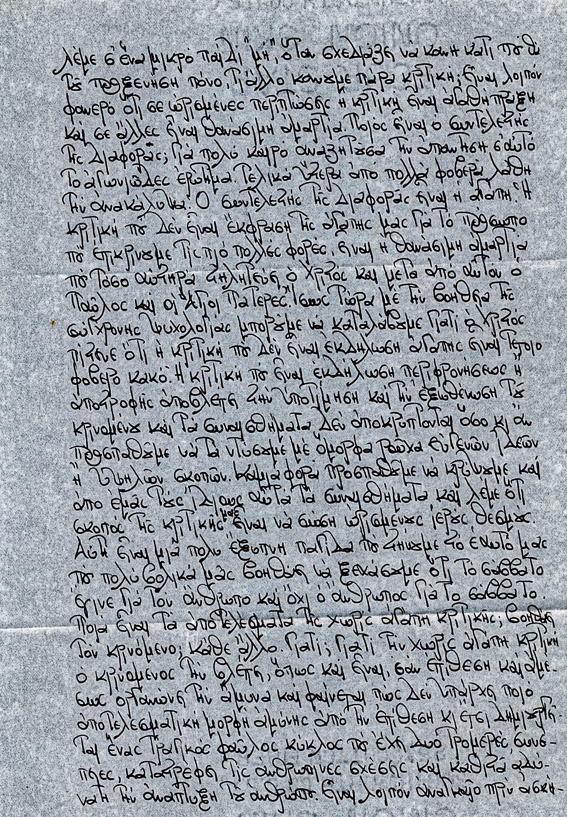 λέμε σ' ἕνα μικρό παιδί "μή", ὅταν σχεδιάζη νά κάνη κάτι πού θά
τοῦ προξενήση πόνο, τί ἄλλο κάνουμε παρά κριτική; Εἶναι λοιπόν
φανερό ὅτι σέ ὡρισμένες περιπτώσεις ἡ κριτική εἶναι ἀγάπη πράξη
καί σέ ἄλλες εἶναι θανάσιμη ἁμαρτία. Ποιος εἶναι ὁ συντελεστής
τῆς διαφορᾶς; Γιά πολύ καιρό ἀναζητοῦσα τήν ἀπάντηση σ' αὐτό
τό ἀγωνιῶδες ἐρώτημα. Τελικά ὕστερα ἀπό πολλά φοβερά λάθη
τήν ἀνακάλυψα. Ὁ συντελεστής τῆς διαφορᾶς εἶναι ἡ ἀγάπη. Ἡ
κριτική πού δέν εἶναι ἔκφραση τῆς ἀγάπης μας γιά τό πρόσωπο
πού ἐπικρίνουμε τίς πιό πολλές φορές, εἶναι ἡ θανάσιμη ἁμαρτία
πού τόσο αὐστηρά στηλίτευσε ὁ Χριστός καί μετά ἀπό αὐτόν ὁ
Παῦλος καί οἱ Ἅγιοι Πατέρες. Ἴσως τώρα μέ τήν βοήθεια τῆς
συγχρονης ψυχολογίας μποροῦμε νά καταλάβουμε γιατί ὁ Χριστός
πίστευε ὅτι ἡ κριτική πού δέν εἶναι ἐκδήλωση ἀγάπης εἶναι τέτοιο
φοβερό κακό. Ἡ κριτική πού εἶναι ἐκδήλωση περιφρονήσεως ἤ
ἀποστροφῆς ἀποβλέπει στήν ὑποτίμηση καί τήν ἐξουθένωση τοῦ
κρινομένου καί τά συναισθήματα δέν ἀποκρύπτονται ὅσο κι ἄν
προσπαθοῦμε νά τά ντύσουμε μέ ὄμορφα ροῦχα εὐγενῶν ἰδεῶν
ἤ ὑψηλῶν σκοπῶν. Καμμιά φορά προσπαθοῦμε νά κρύψουμε καί
ἀπό ἐμᾶς τούς ἴδιους αὐτά τά συναισθήματα καί λέμε ὅτι
σκοπός τῆς κριτικῆς μας εἶναι νά σώση ὡρισμένους ἱερούς θεσμούς.
Αὐτή εἶναι μιά πολύ ἔξυπνη παγίδα πού στήνουμε στό ἑαυτό μας
πού πολύ βολικά μᾶς βοηθάει νά ξεχάσουμε ὅτι τό σάββατο
ἔγινε γιά τόν ἄνθρωπο καί ὄχι ὁ ἄνθρωπος γιά τό σάββατο.
Ποιά εἶναι τά ἀποτελέσματα τῆς χωρίς ἀγάπη κριτικῆς; Βοηθάει
τόν κρινόμενο; Κάθε ἄλλο. Γιατί; Γιατί τήν χωρίς ἀγάπη κριτική
ὁ κρινόμενος τήν βλέπει, ὅπως καί εἶναι, σάν ἐπίθεση καί ἀμέ-
σως ὀργανώνει τήν ἄμυνα καί φαίνεται πώς δέν ὑπάρχει πιό
ἀποτελεσματική μορφή ἀμύνης ἀπό τήν ἐπίθεση κι ἔτσι δημιουργεῖ-
ται ἕνας τραγικός φαῦλος κύκλος πού ἔχει δυό τρομερές συνέ-
πειες, καταστρέφει τίς ἀνθρώπινες σχέσεις καί καθιστᾶ ἀδύ-
νατη τήν ἀνάπτυξη τοῦ ἀνθρώπου. Εἶναι λοιπόν ἀναγκαῖο πρίν ἀσκή-